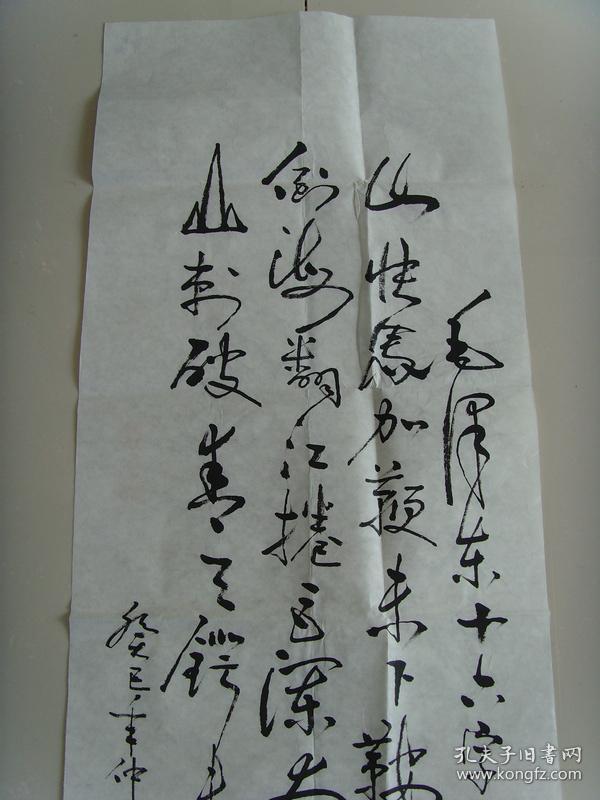 毛泽东十六字
山快马加鞭未下鞍
倒海翻江捲巨澜
山刺破青天锷未
癸巳年仲
孔夫子旧书网
www.kongfz.com